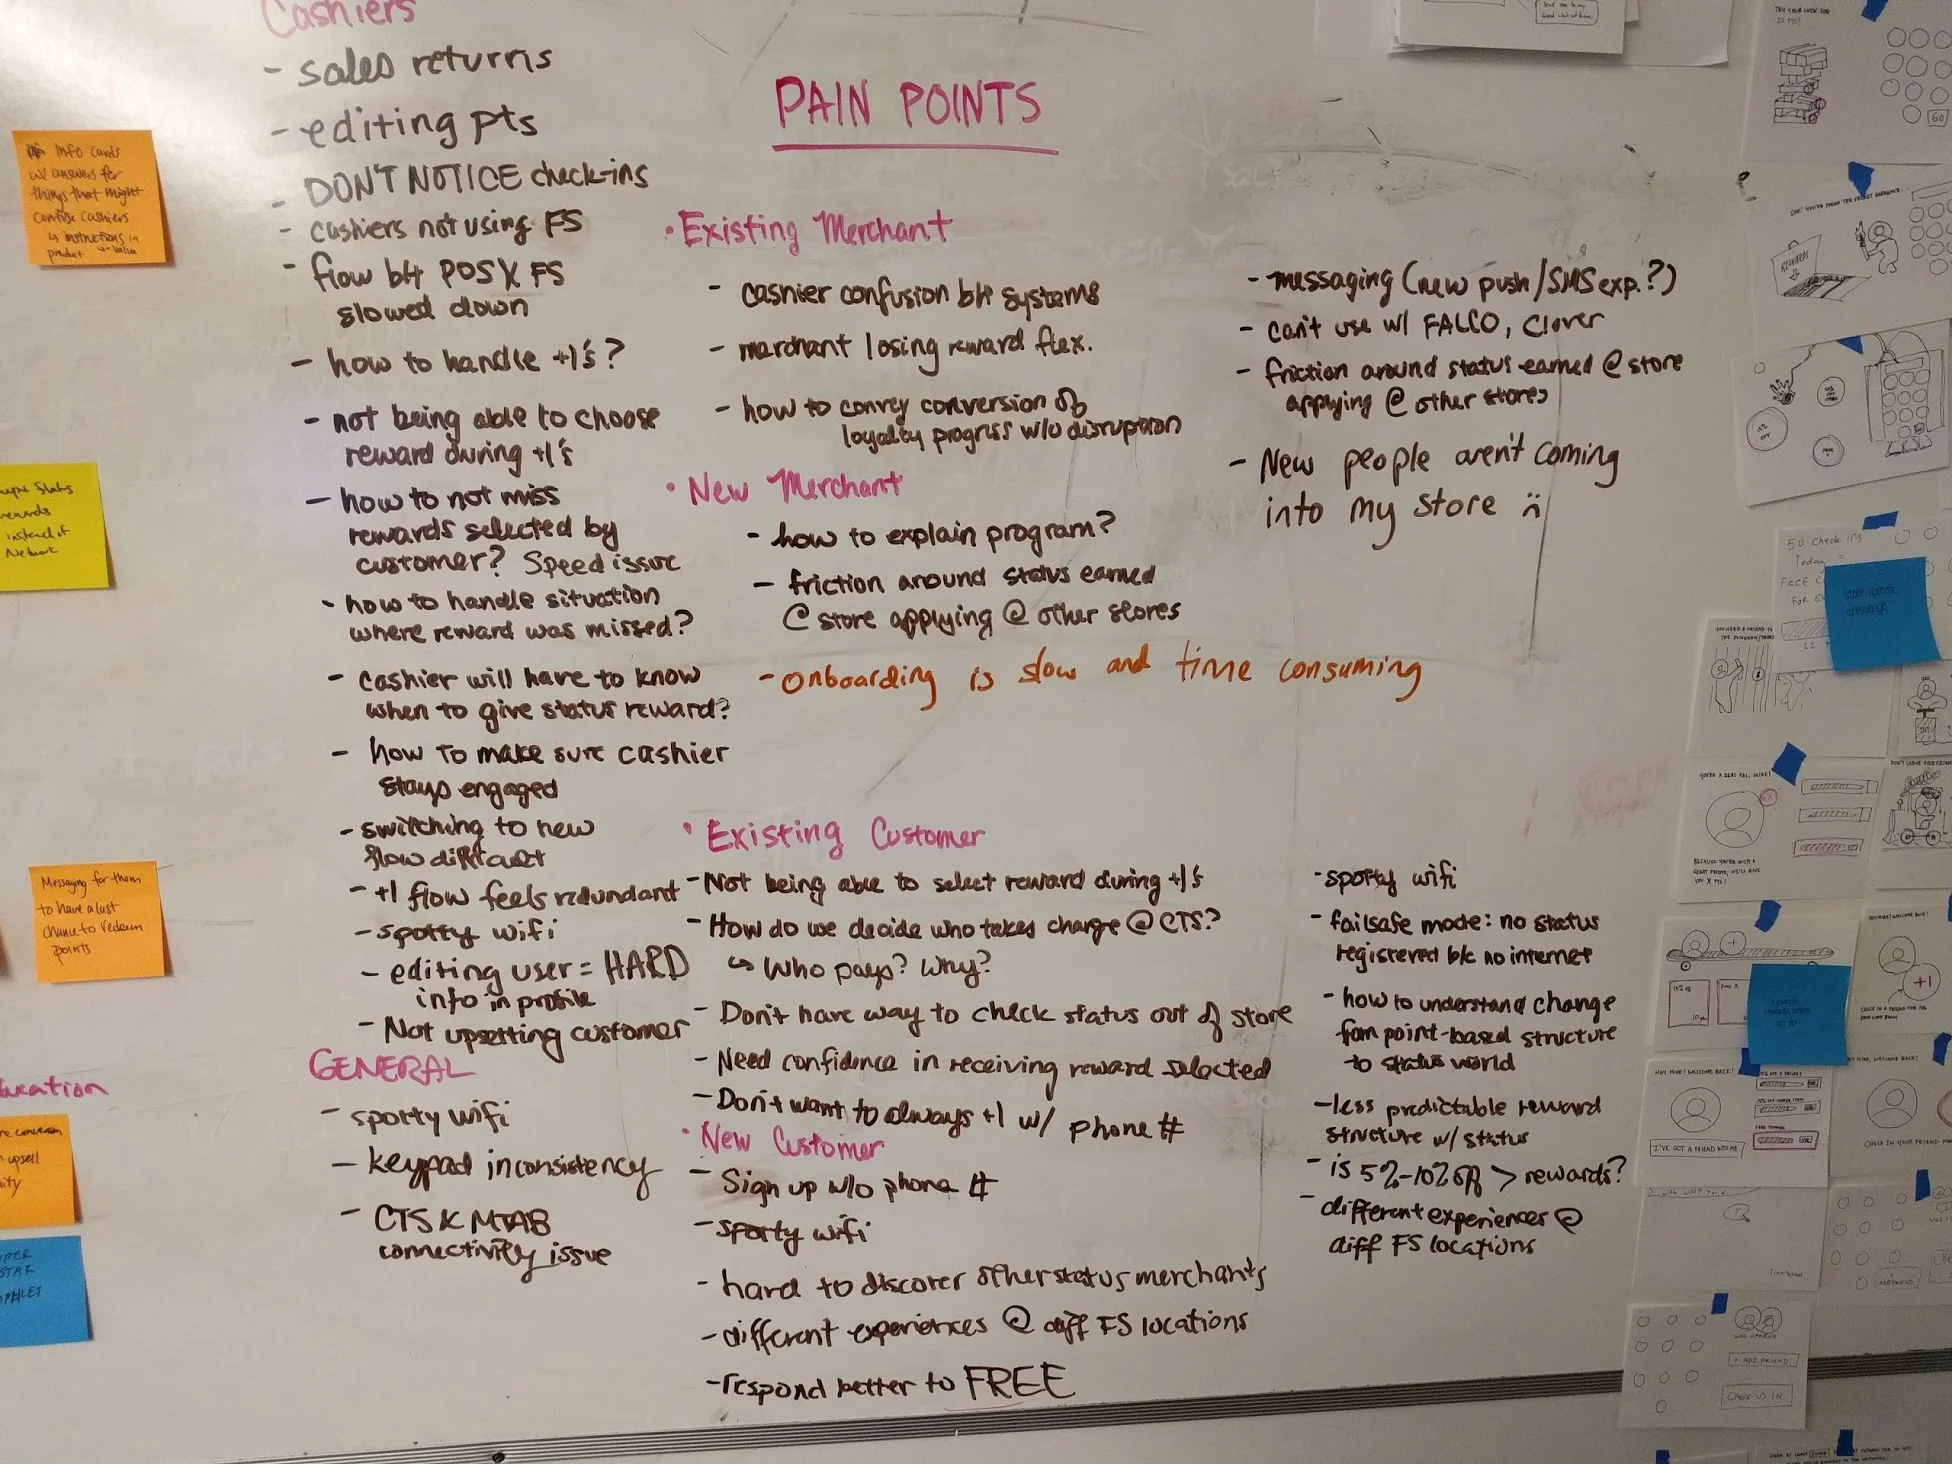 Cashiers
- sales returns
- editing pts
- DON'T NOTICE check-ins
- cashiers not using FS
- flow b/t POS X FS
slowed down
- how to handle +1's?
- not being able to choose
reward during +1's
- how to not miss
rewards selected by
customer? Speed issue
- how to handle situation
where reward was missed?
- cashier will have to know
when to give status reward?
- how to make sure cashier
stays engaged
- switching to new
flow difficult
- +1 flow feels redundant
- spotty wifi
- editing user = HARD
info in profile
- Not upsetting customer
GENERAL
- spotty wifi
- keypad inconsistency
- CTS & MTAB
connectivity issue
PAIN POINTS
• Existing Merchant
- cashier confusion b/t systems
- merchant losing reward flex.
- how to convey conversion of
loyalty progress w/o disruption
• New Merchant
- how to explain program?
- friction around status earned
@ store applying @ other stores
- Onboarding is slow and time consuming
- messaging (new push/SMS exp.?)
- can't use w/ FALCO, Clover
- friction around status earned @ store
applying @ other stores
- New people aren't coming
into my store
• Existing Customer
- Not being able to select reward during +1's
- How do we decide who takes charge @ CTS?
↳ Who pays? Why?
- Don't have way to check status out of store
- Need confidence in receiving reward selected
- Don't want to always +1 w/ phone #
• New Customer
- Sign up w/o phone #
- spotty wifi
- hard to discover other status merchants
- different experiences @ diff FS locations
- respond better to FREE
- spotty wifi
- failsafe mode: no status
registered b/c no internet
- how to understand change
from point-based structure
to status world
- less predictable reward
structure w/ status
- is 5%-10% off > rewards?
- different experiences @
diff FS locations
info cards
w/ answers for
things that might
confuse cashiers
↳ instructions in
product
value
Status
rewards
instead of
Network
Messaging for them
to have a last
chance to redeem
points
upsell
TRY YOUR LUCK FOR
60
REWARDS
50 check ins
Today =
FREE
store-specific
challenge
YOU'RE A REAL PAL, MIKE!
BECAUSE YOU'RE SUCH A
GREAT FRIEND, WE'LL GIVE
YOU X PTS!
+1
HEY MIKE! WELCOME BACK!
I'VE GOT A FRIEND WITH ME
CHECK IN YOUR FRIEND
+ ADD FRIEND
CHECK US IN